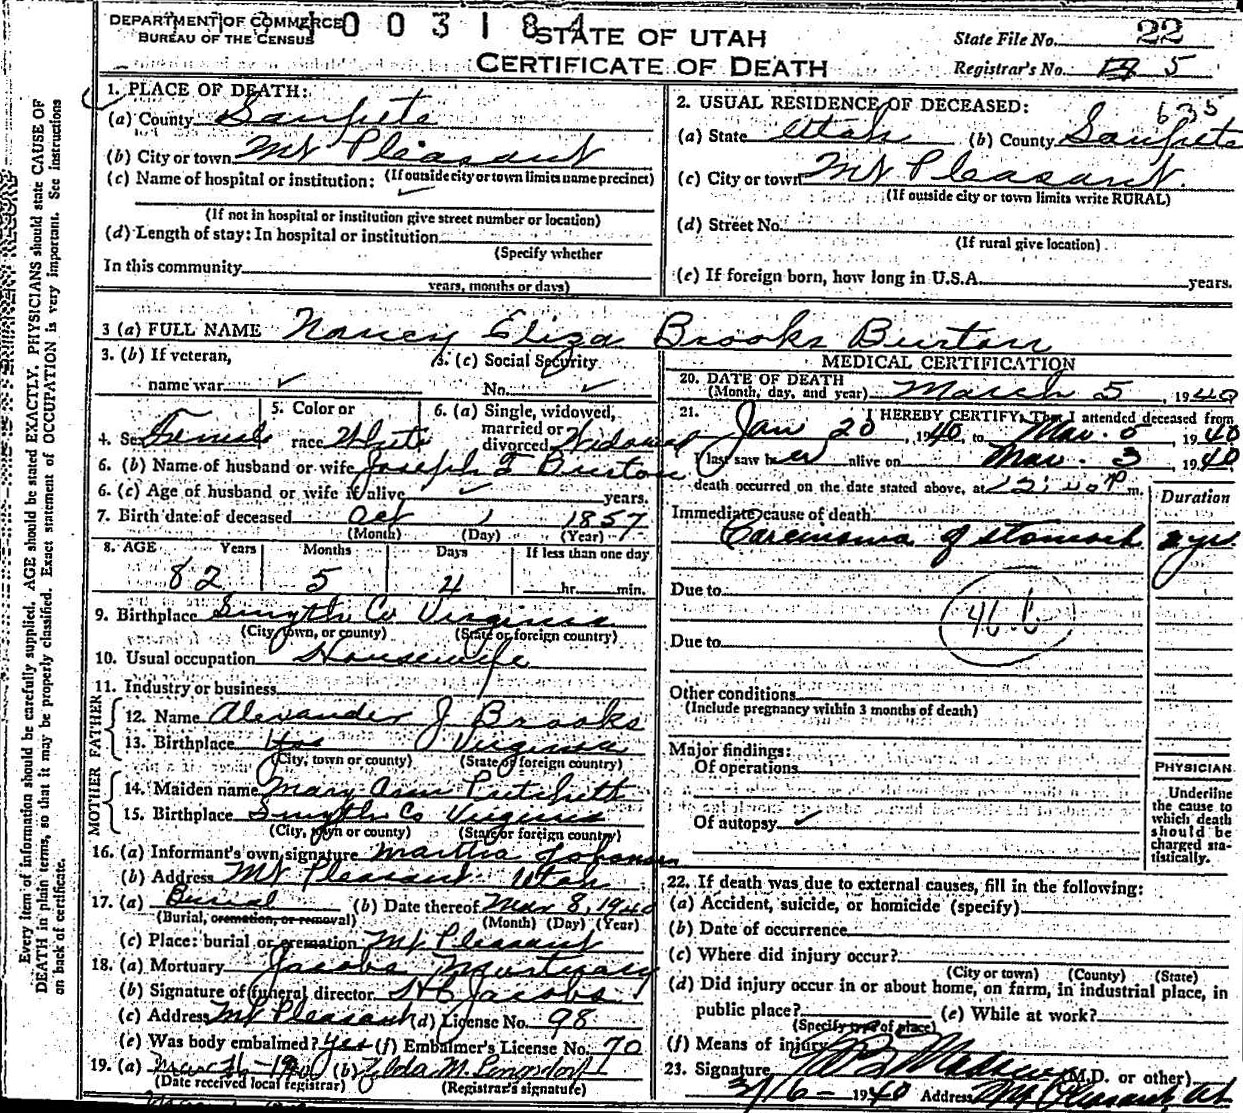 DEPARTMENT OF COMMERCE
BUREAU OF THE CENSUS
4 0 0 3 1 8 4
STATE OF UTAH
CERTIFICATE OF DEATH
State File No. 22
Registrar's No. 5
Every item of information should be carefully supplied. AGE should be stated EXACTLY. PHYSICIANS should state CAUSE OF
DEATH in plain terms, so that it may be properly classified. Exact statement of OCCUPATION is very important. See instructions
on back of certificate.
1. PLACE OF DEATH:
(a) County Sanpete
(b) City or town Mt Pleasant
(If outside city or town limits name precinct)
(c) Name of hospital or institution:
(If not in hospital or institution give street number or location)
(d) Length of stay: In hospital or institution
(Specify whether
In this community
years, months or days)
2. USUAL RESIDENCE OF DECEASED: 635
(a) State Utah (b) County Sanpete
(c) City or town Mt Pleasant
(If outside city or town limits write RURAL)
(d) Street No.
(If rural give location)
(e) If foreign born, how long in U.S.A. years.
3 (a) FULL NAME Nancy Eliza Brooks Burton
3. (b) If veteran,
name war ✓
3. (c) Social Security
No. ✓
4. Sex Female
5. Color or
race White
6. (a) Single, widowed,
married or
divorced Widowed
6. (b) Name of husband or wife Joseph F Burton
6. (c) Age of husband or wife if alive ✓ years.
7. Birth date of deceased Oct 1 1857
(Month) (Day) (Year)
8. AGE Years Months Days If less than one day
82 5 4 hr. min.
9. Birthplace Smyth Co Virginia
(City, town, or county) (State or foreign country)
10. Usual occupation Housewife
11. Industry or business
FATHER
12. Name Alexander J Brooks
13. Birthplace Virginia
(City, town or county) (State of foreign country)
MOTHER
14. Maiden name Mary Ann Pritchett
15. Birthplace Smyth Co Virginia
(City, town or county) (State or foreign country)
16. (a) Informant's own signature Martha Johansen
(b) Address Mt Pleasant Utah
17. (a) Burial (b) Date thereof Mar 8, 1940
(Burial, cremation, or removal) (Month) (Day) (Year)
(c) Place: burial or cremation Mt Pleasant
18. (a) Mortuary Jacobs Mortuary
(b) Signature of funeral director Jacobs
(c) Address Mt Pleasant (d) License No. 98
(e) Was body embalmed? Yes (f) Embalmer's License No. 70
19. (a) (b)
(Date received local registrar) (Registrar's signature)
MEDICAL CERTIFICATION
20. DATE OF DEATH
(Month, day, and year) March 5, 1940
21. I HEREBY CERTIFY, That I attended deceased from
Jan 20, 1940, to Mar. 5 1940
I last saw her alive on Mar. 3, 1940
death occurred on the date stated above, at 12:40 P m.
Duration
Immediate cause of death
Carcinoma of stomach 2 yrs.
Due to
46 b
Due to
Other conditions
(Include pregnancy within 3 months of death)
Major findings:
Of operations
Of autopsy ✓
PHYSICIAN
Underline
the cause to
which death
should be
charged sta-
tistically.
22. If death was due to external causes, fill in the following:
(a) Accident, suicide, or homicide (specify)
(b) Date of occurrence
(c) Where did injury occur?
(City or town) (County) (State)
(d) Did injury occur in or about home, on farm, in industrial place, in
public place? (e) While at work?
(Specify type of place)
(f) Means of injury
23. Signature (M.D. or other)
3/6 - 1940 Address Mt Pleasant Ut